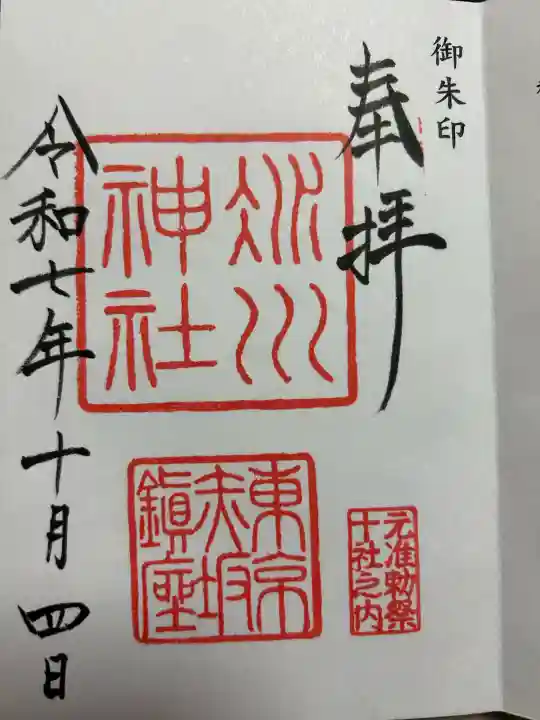 御朱印
奉拝
氷川
神社
東京
赤坂
鎮座
元准勅祭
十社之内
令和七年十月四日